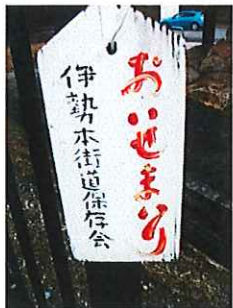 おいせまいり
伊勢本街道保存会